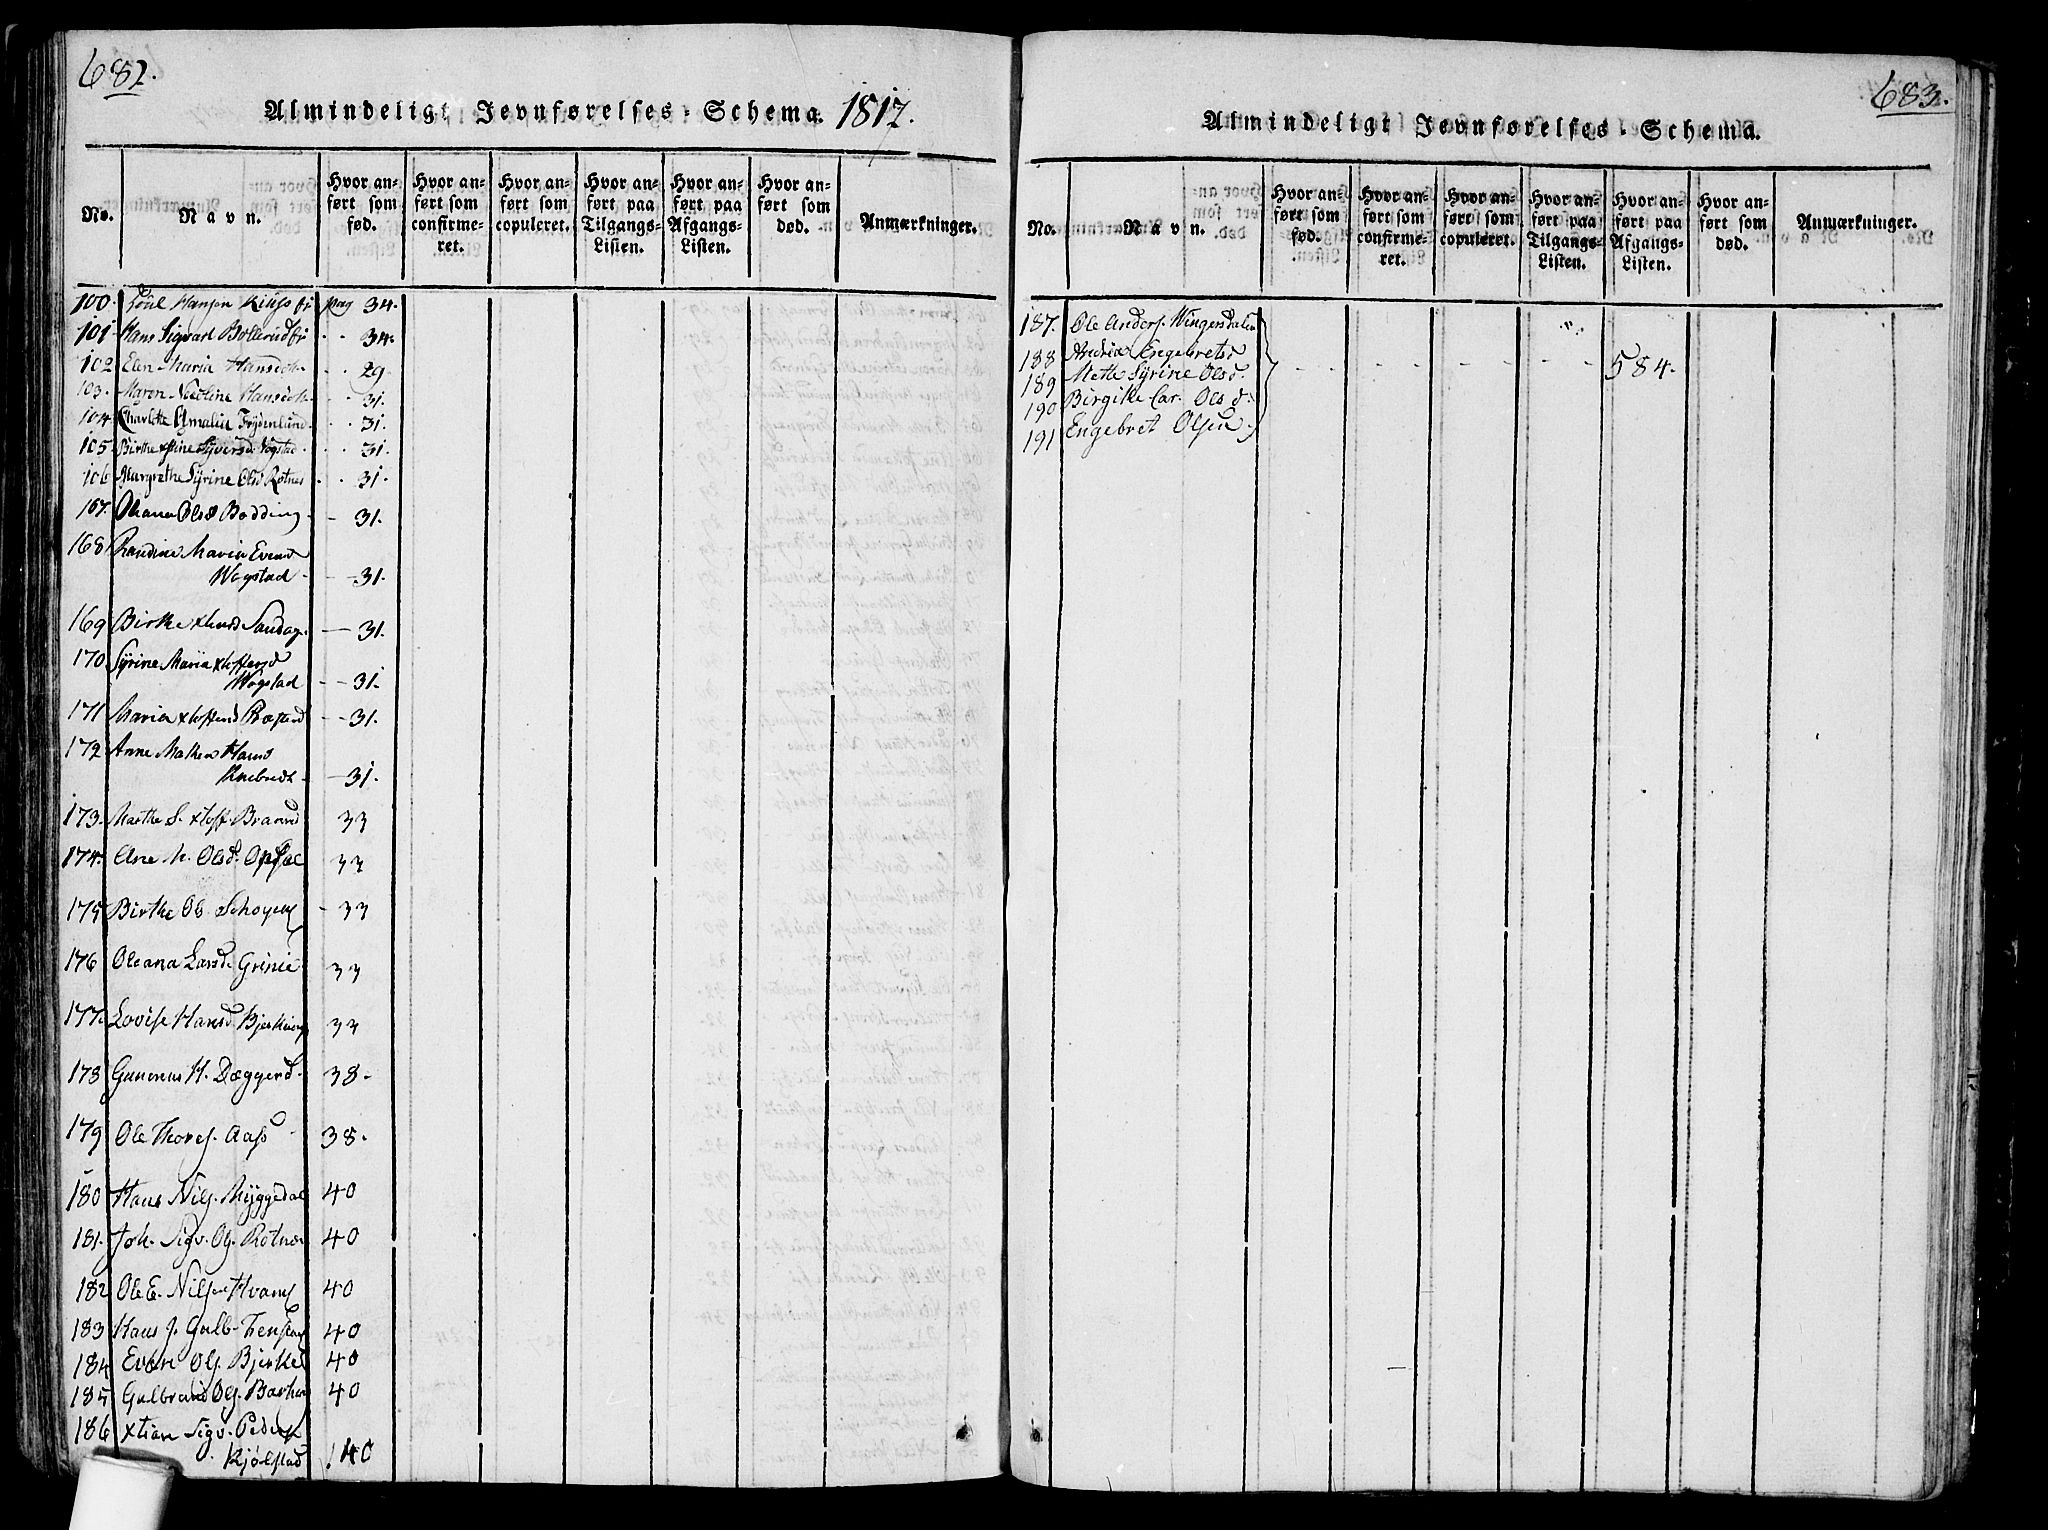 682.
Almindeligt Jevnførelses-Schema. 1817.
No.
Navn.
Hvor anført som fød.
Hvor anført som confirmeret.
Hvor anført som copuleret.
Hvor anført paa Tilgangs-Listen.
Hvor anført paa Afgangs-Listen.
Hvor anført som død.
Anmærkninger.
100. Poul Hansen pag 34.
101 Hans Sigvart 34.
102 Elen Maria Hansdt. 29
103. Maren Hansdt. 31.
104 Charlotte Amalia Frydenlund 31.
105. Birthe Syversd. Vogstad 31.
106 Margrethe Syrine Olsd Rotnes 31.
107. Oleana Olsd Bødding 31.
168 Randine Maria Evensd
Wogstad 31.
169 Birthe 31.
170 Syrine Maria xtoffersd
Wogstad 31.
171 Maria xtoffersd 31.
172 Anne Mathea Hansd
31.
173. Marthe S. xtoff. Braarud 33
174. Ane M. Olsd. Opsal 33
175 Birthe Ol. Schøyen 33
176 Oleana Larsd. Grinie 33
177. Lovise Hansd. 33
178 Gunerus H. Dæggerud 38.
179 Ole Thores. Aass 38.
180 Hans Nils. Myggedal 40
181. Joh. Sigv. Ol. Rotnæs 40
182 Ole E. Nilsen Hvam 40
183 Hans J. Gulb. 40
184 Even Ols. Bjerke 40
185 Gulbrand Ols. 40
186 xtian Sigv. Peders.
Kjølstad 140
683.
Almindeligt Jevnførelses-Schema.
No.
Navn.
Hvor anført som fød.
Hvor anført som confirmeret.
Hvor anført som copuleret.
Hvor anført paa Tilgangs-Listen.
Hvor anført paa Afgangs-Listen.
Hvor anført som død.
Anmærkninger.
187. Ole Anders. Wingersdalen
188 Andrea Engebretsd
189 Mette Syrine Olsd. 584.
190 Birgitte Car. Olsd.
191 Engebret Olsen